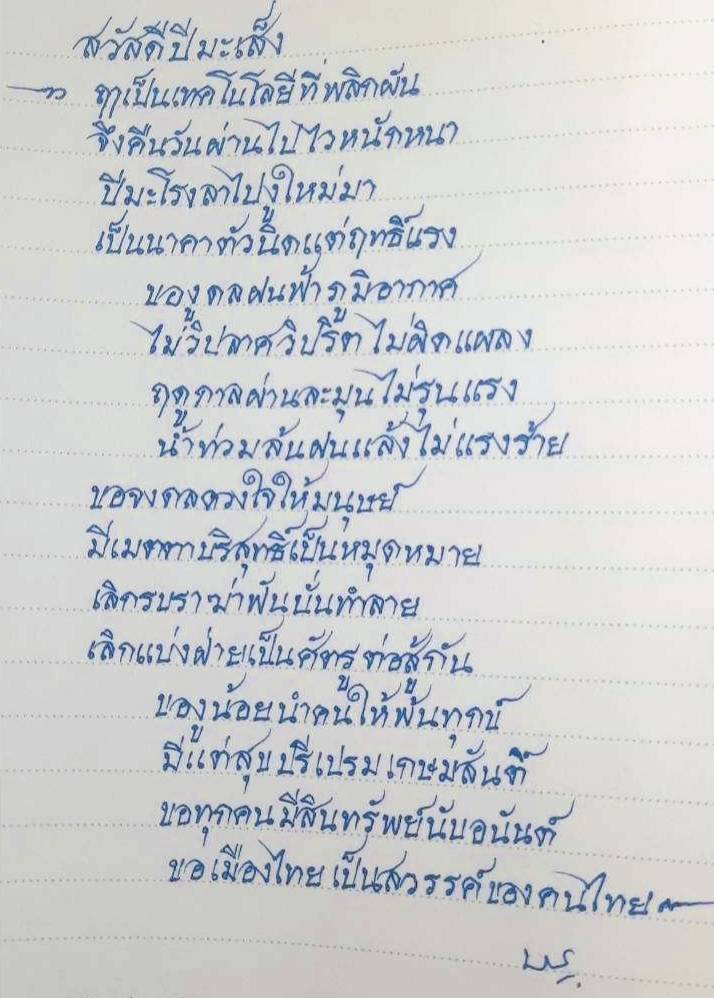 สวัสดีปีมะเส็ง
ฤๅเป็นเทคโนโลยีที่พลิกผัน
จึงคืนวันผ่านไปไวหนักหนา
ปีมะโรงลาไปงูใหม่มา
เป็นนาคาตัวนิดแต่ฤทธิ์แรง
ของูดลฝนฟ้าภูมิอากาศ
ไม่วิปลาศวิปริตไม่ผิดแผลง
ฤดูกาลผ่านละมุนไม่รุนแรง
น้ำท่วมล้นฝนแล้งไม่แรงร้าย
ขอจงดลดวงใจให้มนุษย์
มีเมตตาบริสุทธิ์เป็นหมุดหมาย
เลิกรบราฆ่าฟันบั่นทำลาย
เลิกแบ่งฝ่ายเป็นศัตรูต่อสู้กัน
ของูน้อยนำคนให้พ้นทุกข์
มีแต่สุขปรีเปรมเกษมสันติ์
ขอทุกคนมีสินทรัพย์นับอนันต์
ขอเมืองไทยเป็นสวรรค์ของคนไทย